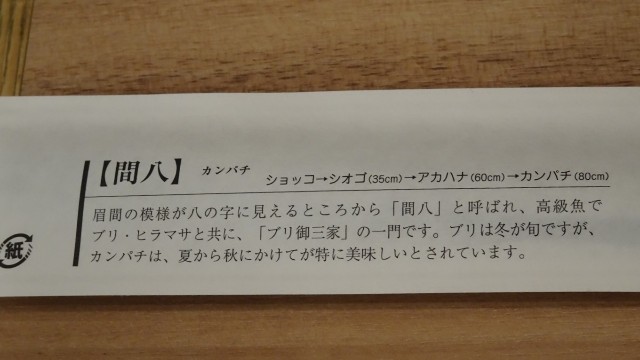 【間八】 カンパチ ショッコ→シオゴ(35cm)→アカハナ(60cm)→カンパチ(80cm)
眉間の模様が八の字に見えるところから「間八」と呼ばれ、高級魚で
ブリ・ヒラマサと共に、「ブリ御三家」の一門です。ブリは冬が旬ですが、
カンパチは、夏から秋にかけてが特に美味しいとされています。
紙